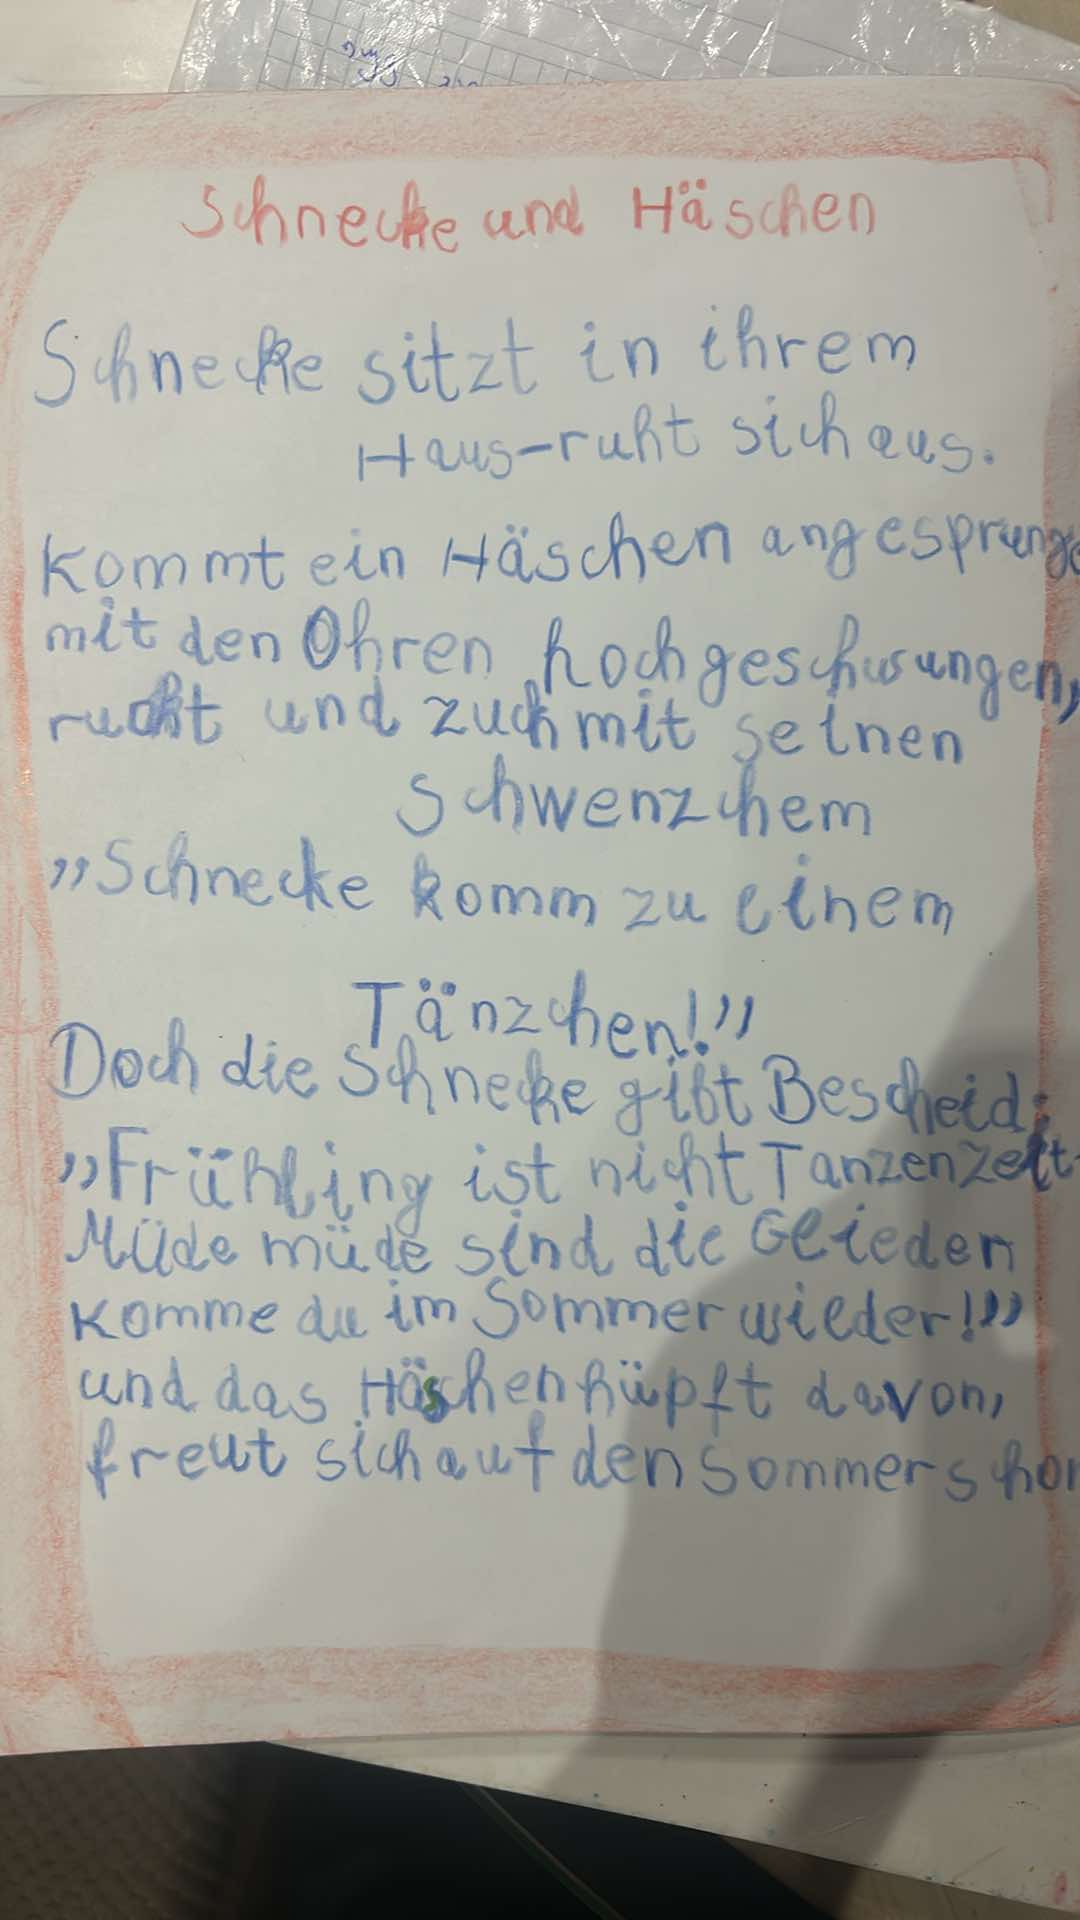 Schnecke und Häschen
Schnecke sitzt in ihrem
Haus-ruht sich aus.
Kommt ein Häschen angesprunge
mit den Ohren hochgeschwungen,
ruckt und zuckt mit seinen
Schwenzchem
"Schnecke komm zu einem
Tänzchen!"
Doch die Schnecke gibt Bescheid:
"Frühling ist nicht Tanzenzeit-
Müde müde sind die Glieden
Komme du im Sommer wieder!"
und das Häschen hüpft davon,
freut sich auf den Sommer schon